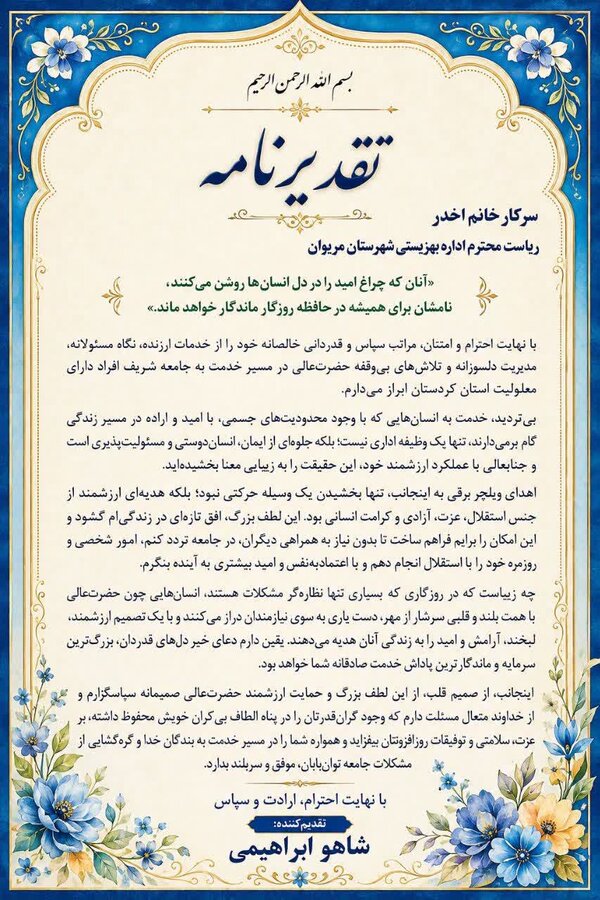 بسم الله الرحمن الرحیم
تقدیرنامه
سرکار خانم اخدر
ریاست محترم اداره بهزیستی شهرستان مریوان
«آنان که چراغ امید را در دل انسان‌ها روشن می‌کنند،
نامشان برای همیشه در حافظه روزگار ماندگار خواهد ماند.»
با نهایت احترام و امتنان، مراتب سپاس و قدردانی خالصانه خود را از خدمات ارزنده، نگاه مسئولانه،
مدیریت دلسوزانه و تلاش‌های بی‌وقفه حضرت‌عالی در مسیر خدمت به جامعه شریف افراد دارای
معلولیت استان کردستان ابراز می‌دارم.
بی‌تردید، خدمت به انسان‌هایی که با وجود محدودیت‌های جسمی، با امید و اراده در مسیر زندگی
گام برمی‌دارند، تنها یک وظیفه اداری نیست؛ بلکه جلوه‌ای از ایمان، انسان‌دوستی و مسئولیت‌پذیری است
و جنابعالی با عملکرد ارزشمند خود، این حقیقت را به زیبایی معنا بخشیده‌اید.
اهدای ویلچر برقی به اینجانب، تنها بخشیدن یک وسیله حرکتی نبود؛ بلکه هدیه‌ای ارزشمند از
جنس استقلال، عزت، آزادی و کرامت انسانی بود. این لطف بزرگ، افق تازه‌ای در زندگی‌ام گشود و
این امکان را برایم فراهم ساخت تا بدون نیاز به همراهی دیگران، در جامعه تردد کنم، امور شخصی و
روزمره خود را با استقلال انجام دهم و با اعتمادبه‌نفس و امید بیشتری به آینده بنگرم.
چه زیباست که در روزگاری که بسیاری تنها نظاره‌گر مشکلات هستند، انسان‌هایی چون حضرت‌عالی
با همت بلند و قلبی سرشار از مهر، دست یاری به سوی نیازمندان دراز می‌کنند و با یک تصمیم ارزشمند،
لبخند، آرامش و امید را به زندگی آنان هدیه می‌دهند. یقین دارم دعای خیر دل‌های قدردان، بزرگ‌ترین
سرمایه و ماندگارترین پاداش خدمت صادقانه شما خواهد بود.
اینجانب، از صمیم قلب، از این لطف بزرگ و حمایت ارزشمند حضرت‌عالی صمیمانه سپاسگزارم و
از خداوند متعال مسئلت دارم که وجود گران‌قدرتان را در پناه الطاف بی‌کران خویش محفوظ داشته، بر
عزت، سلامتی و توفیقات روزافزونتان بیفزاید و همواره شما را در مسیر خدمت به بندگان خدا و گره‌گشایی از
مشکلات جامعه توان‌یابان، موفق و سربلند بدارد.
با نهایت احترام، ارادت و سپاس
تقدیم‌کننده:
شاهو ابراهیمی